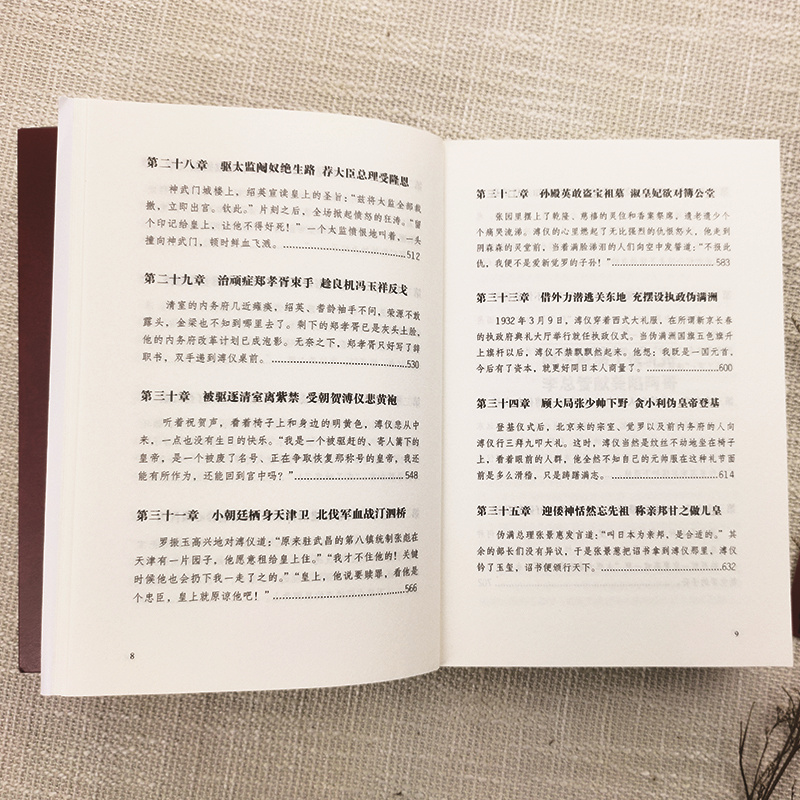 第二十八章 驱太监阉奴绝生路 荐大臣总理受隆恩
神武门城楼上，绍英宣读皇上的圣旨：“兹将太监全部裁
撤，立即出宫。钦此。”片刻之后，全场掀起愤怒的狂涛。“留
个印记给皇上，让他不得好死！”一个太监愤恨地叫着，一头
撞向神武门，顿时鲜血飞溅。512
第二十九章 治顽症郑孝胥束手 趁良机冯玉祥反戈
清室的内务府几近瘫痪，绍英、耆龄袖手不问，荣源不敢
露头，金梁也不知到哪里去了。剩下的郑孝胥已是灰头土脸，
他的内务府改革计划已成泡影。无奈之下，郑孝胥只好写了辞
职书，双手递到溥仪桌前。530
第三十章 被驱逐清室离紫禁 受朝贺溥仪悲黄袍
听着祝贺声，看着椅子上和身边的明黄色，溥仪悲从中
来，一点也没有生日的快乐。“我是一个被驱赶的、寄人篱下的
皇帝，是一个被废了名号、正在争取恢复那称号的皇帝，我还
能有所作为，还能回到宫中吗？”548
第三十一章 小朝廷栖身天津卫 北伐军血战汀泗桥
罗振玉高兴地对溥仪道：“原来驻武昌的第八镇统制张彪在
天津有一片园子，他愿意租给皇上住。”“我才不住他的！关键
时候他也会扔下我一走了之的。”“皇上，他说要赎罪，看他是
个忠臣，皇上就原谅他吧！”566
8
第三十二章 孙殿英敢盗宝祖墓 淑皇妃欲对簿公堂
张园里摆上了乾隆、慈禧的灵位和香案祭席，遗老遗少个
个痛哭流涕。溥仪的心里燃起了无比强烈的仇恨怒火，他走到
阴森森的灵堂前，当着满脸涕泪的人们向空中发誓道：“不报此
仇，我便不是爱新觉罗的子孙！”583
第三十三章 借外力潜逃关东地 充摆设执政伪满洲
1932年3月9日，溥仪穿着西式大礼服，在所谓新京长春
的执政府奥礼大厅举行就任执政仪式。当伪满洲国旗五色旗升
上旗杆以后，溥仪不禁飘飘然起来。他想：我既是一国元首，
今后有了资本，就更好同日本人商量了。600
第三十四章 顾大局张少帅下野 贪小利伪皇帝登基
登基仪式后，北京来的宗室、觉罗以及前内务府的人向
溥仪行三拜九叩大礼。这时，溥仪当然是纹丝不动地坐在椅子
上，看着眼前的人群，他全然不知自己的元帅服在这种礼节面
前是多么滑稽，只是踌躇满志。614
第三十五章 迎倭神恬然忘先祖 称亲邦甘之做儿皇
伪满总理张景惠发言道：“叫日本为亲邦，是合适的。”其
余的部长们没有异议，于是张景惠把诏书拿到溥仪那里，溥仪
钤了玉玺，诏书便颁行天下。632
9